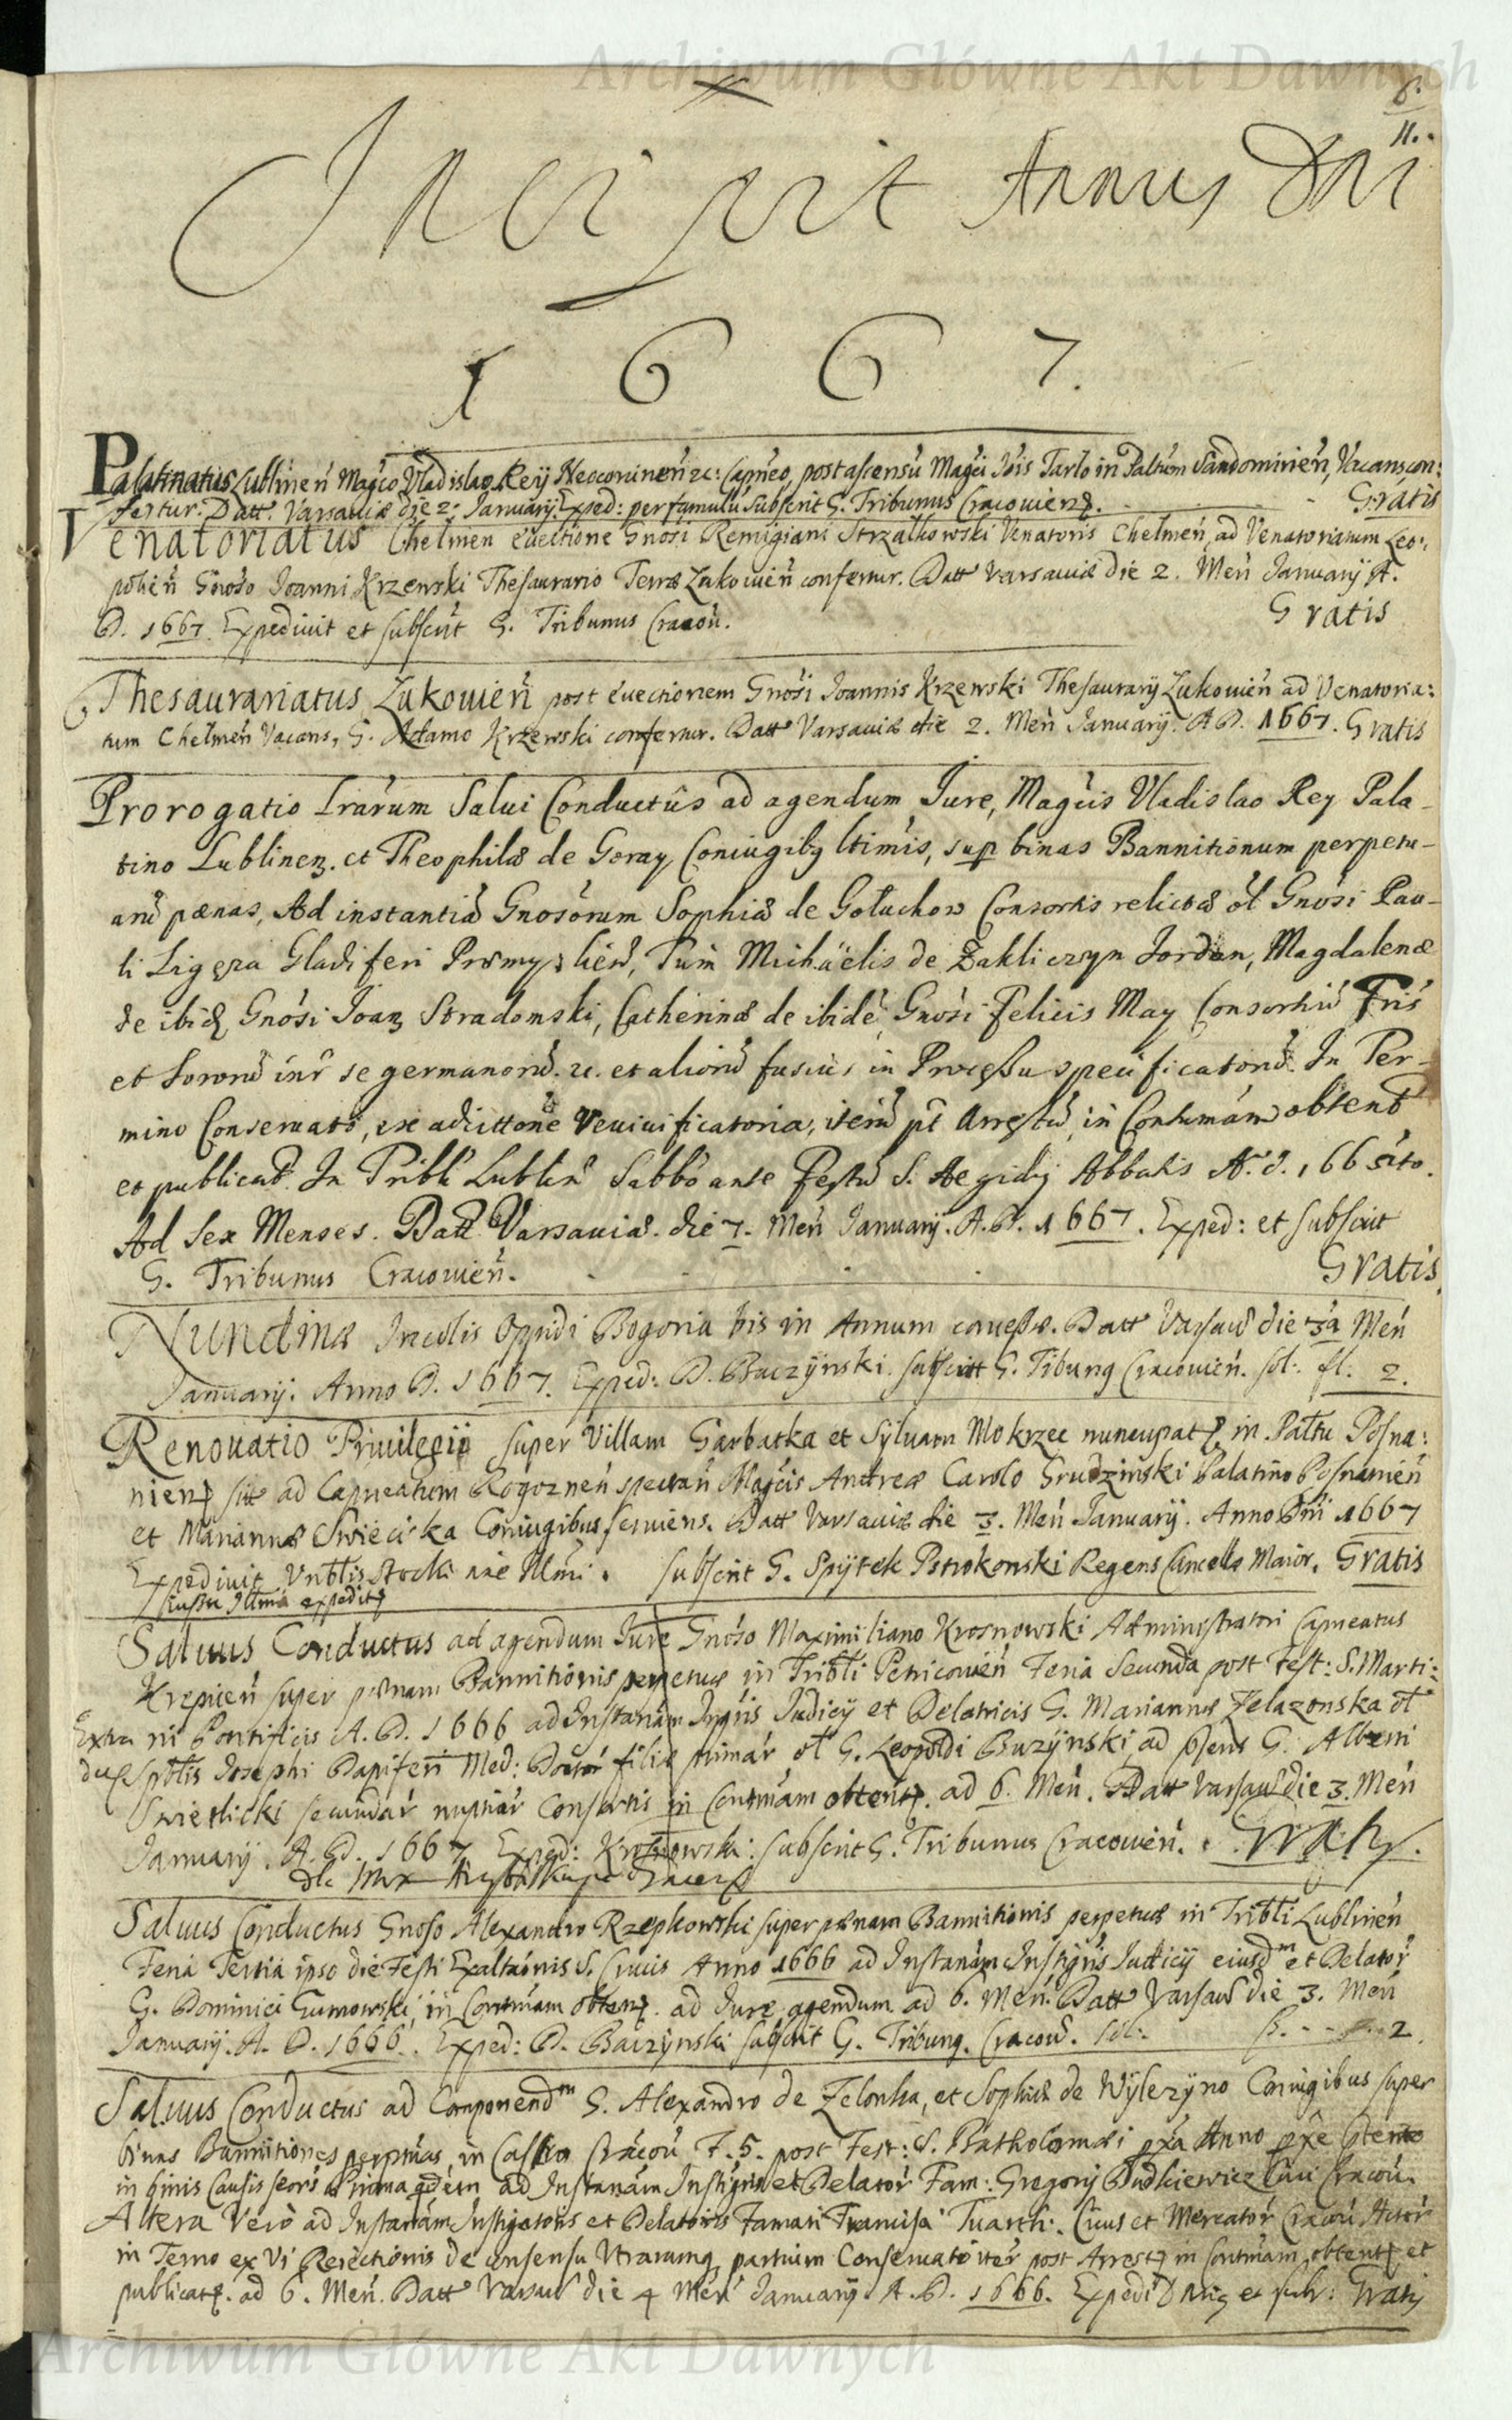 Archiwum Główne Akt Dawnych
6.
11.
Incipit Annus Dni
1667.
Palatinatus Lublineń Magco Vladislao Reij Neocorcineń zc: Capneo, post ascensu Magci Jois Tarlo in Paltum Sandomirień, Vacans, con:
fertur. Datt. Varsauiæ die 2. Januarij. Exped: per famulu Subscrit G. Tribunus Cracouienȝ. Gratis
Venatoriatus Chelmeń euectione Gnosi Remigiani Strzałkowski Venatoris Chelmeń, ad Venatoriatum Leo:
polień Gnoso Joanni Krzewski Thesaurario Terræ Lukouień confertur. Datt Varsauiæ die 2. Meń Januarij A.
D. 1667 Expediuit et subscrit G. Tribunus Cracou. Gratis
Thesaurariatus Lukouień post euectionem Gnosi Joannis Krzewski Thesaurarij Lukouień ad Venatoria:
tum Chelmeń Vacans, G. Adamo Krzewski confertur. Datt Varsauiæ die 2. Meń Januarij. A D. 1667. Gratis
Prorogatio Lrarum Salui Conductûs ad agendum Jure, Magcis Vladislao Rey Pala-
tino Lublinenȝ. et Theophilæ de Goray Coniugibȝ ltimis, sup binas Bannitionum perpetu-
aru pœnas, Ad instantiã Gnosorum Sophiæ de Gołuchow Consortis relictæ ol Gnosi Pau-
li Ligęza Gladiferi Præmysliẽ, Tum Michaelis de Zakliczyn Jordan, Magdalenæ
de ibid, Gnosi Joan Stradomski, Catherinæ de ibidẽ Gnosi Felicis May Consortiũ Fris
et Sororũ inr se germanorũ. zc. et aliorũ fusius in Processu specificatorũ. In Ter-
mino Conseruato, ex adictione Reuiuificatoria, iterũ pt Arrestũ, in Contumam obtent
et publicat. In Tribli Lublin Sabbo ante Festũ S. Aegidij Abbatis A. D. 1665to.
Ad Sex Menses. Datt Varsauiæ. die 7. Meń Januarij. A. D. 1667. Exped: et subscrit
G. Tribunus Cracouień. Gratis
Nundinæ Incolis Oppidi Bogoria bis in Annum concessæ. Datt Varsau die 3a Meń
Januarij. Anno D. 1667. Exped: D. Baczynski. subscrit G. Tribunȝ Cracouień. sol: fl. 2.
Renouatio Priuilegii super Villam Garbatka et Syluam Mokrzec nuncupat, in Paltu Posna:
nienȝ sitt ad Capneatum Rogozneń spectań Magcis Andreæ Carolo Grudzinski Palatino Posnanień
et Mariannæ Swięcicka Coniugibus, seruiens. Datt Varsauiæ die 3. Meń Januarij. Anno Dni 1667
Expediuit Vrblis Stocki Subscrit G. Spÿtek Pstrokonski Regens Cancella Maior. Gratis
iussu Illmi expedit
Saluus Conductus ad agendum Jure Gnoso Maximiliano Krosnowski Administratori Capneatus
Krepień super pœnam Bannitionis perpetuæ in Tribli Petricouień Feria Secunda post Fest: S. Marti:
Extra ni Pontificis A. D. 1666 ad Instanam Judicij et Delatricis G. Mariannæ Żelazonska ol
dup Spblis Josephi Med: Doctor filiæ primar ol G. Leopoldi Buzynski, ad psens G. Alberti
Swietlicki secundar nuptiar Consortis in Contumam obtent. ad 6. Meń. Datt Varsau die 3. Meń
Januarij. A. D. 1667 Exped: Krosnowski: subscrit G. Tribunus Cracouień. Gratis.
Saluus Conductus Gnoso Alexandro Rzepkowski super pœnam Bannitionis perpetuæ in Tribli Lublineń
Feria Tertia ipso die Festi Exaltaonis S. Crucis Anno 1666 ad Instanam Instigris Judicij eiusdm et Delator
G. Dominici Gumowski, in Contumam obtenȝ. ad Jure agendum ad 6. Meń. Datt Varsau die 3. Meń
Januarij. A. D. 1666. Exped: D. Baczynski subscrit G. Tribunȝ. Cracou. sol: fl. 2.
Saluus Conductus ad Componendm G. Alexandro de Zelonka, et Sophiæ de Wylezyno Coniugibus super
binas Bannitiones perpetuas, in Castro Cracou F. 5. post Fest: S. Bartholomæi Anno
in binis Causis seors Prima qdem ad Instanam Instigris et Delator Fam: Gregorij Budkiewicz Ciui Cracou.
Altera Vero ad Instanam Instigatoris et Delatoris Famati Francisci Ciuis et Mercator Cracou
in Termo ex Vi Reiectionis de consensu Vtrarumq partium Conseruato iter post Arrest in Contumam, obtent et
publicat. ad 6. Meń. Datt Varsau die 4 Meń Januarij. A. D. 1666. Gratis
Archiwum Główne Akt Dawnych